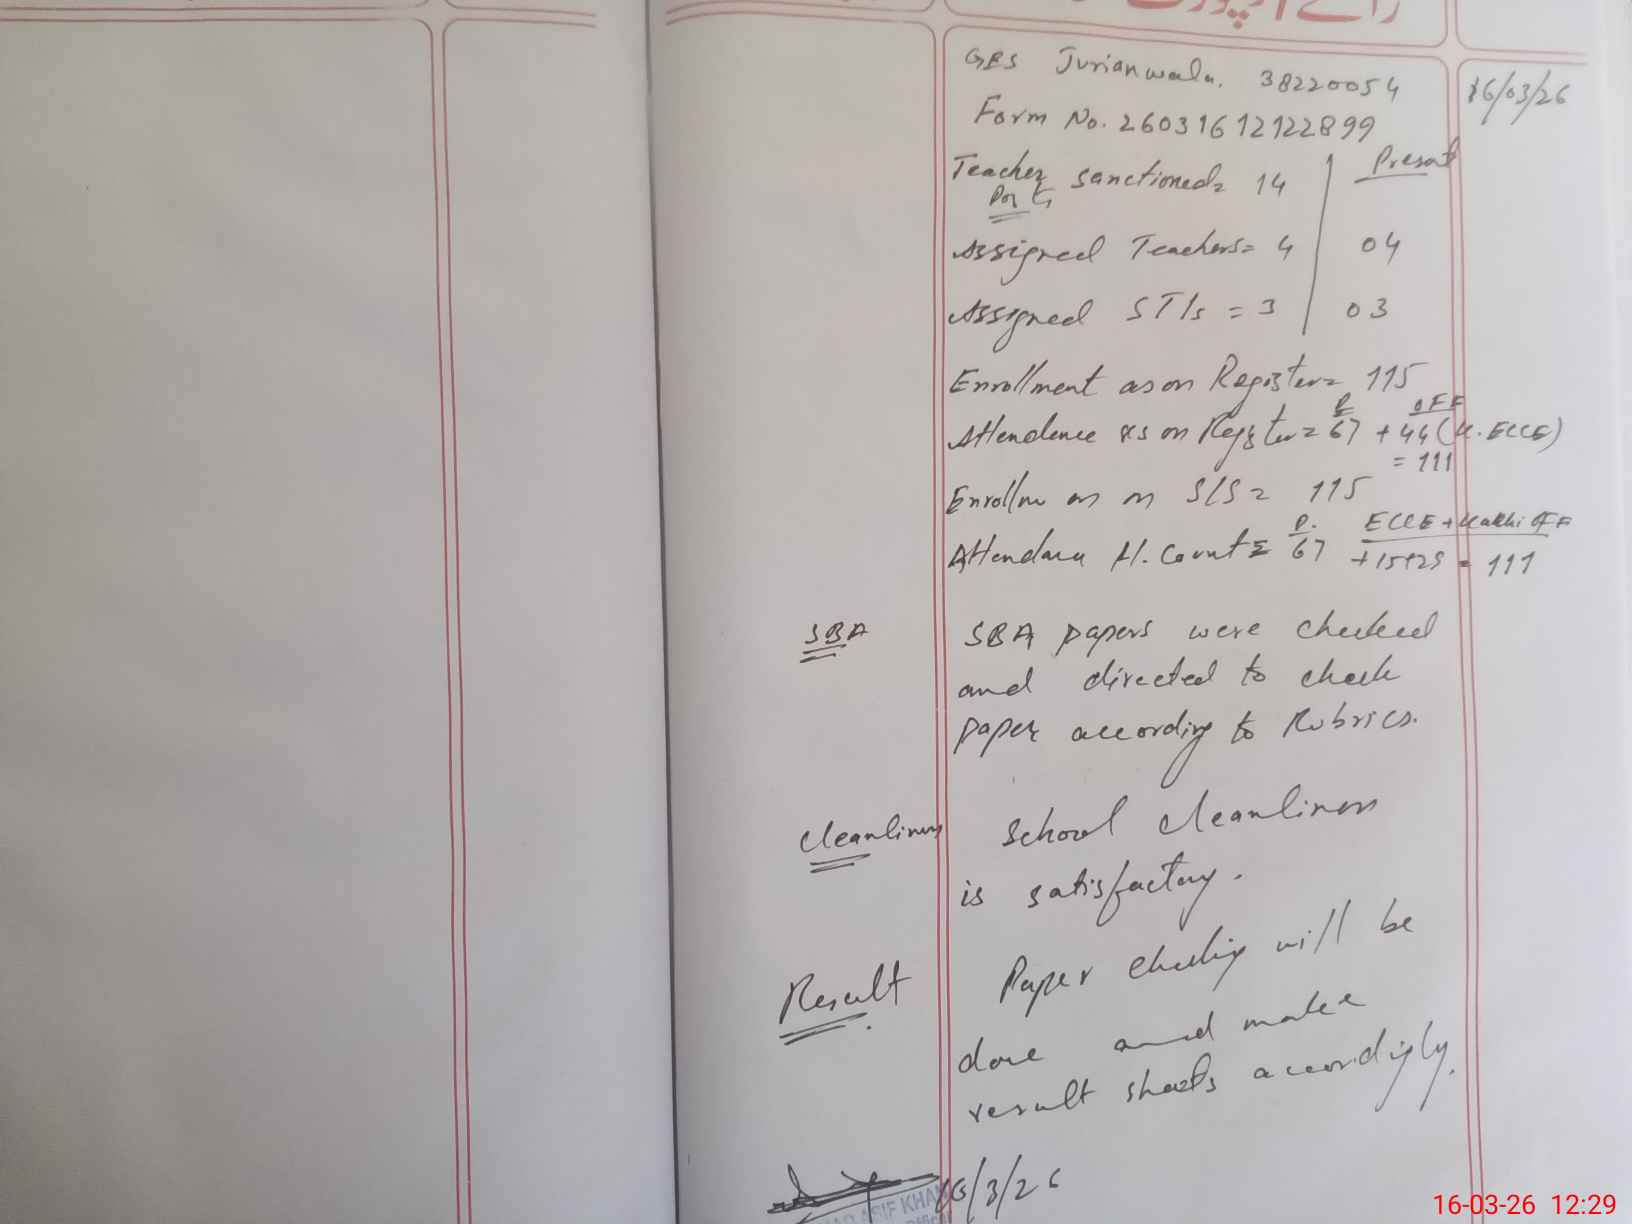 رائے
GES Jurianwala. 38220054 16/03/26
Form No. 26031612122899
Teacher sanctioned= 14 Present
Posts
Assigned Teachers= 4 04
Assigned STIs = 3 03
Enrollment as on Register= 115
Attendence as on Register= 67 + 44 (K. ECCE)
P OFF
= 111
Enrollm as on SIS = 115
P. ECCE + Kakhi OFF
Attendance H. Count = 67 +15+29 = 111
SBA SBA papers were checked
and directed to check
paper according to Rubrics.
Cleanliness School cleanliness
is satisfactory.
Result Paper checking will be
done and make
result sheets accordigly.
16/3/26
ASIF KHAN
16-03-26 12:29